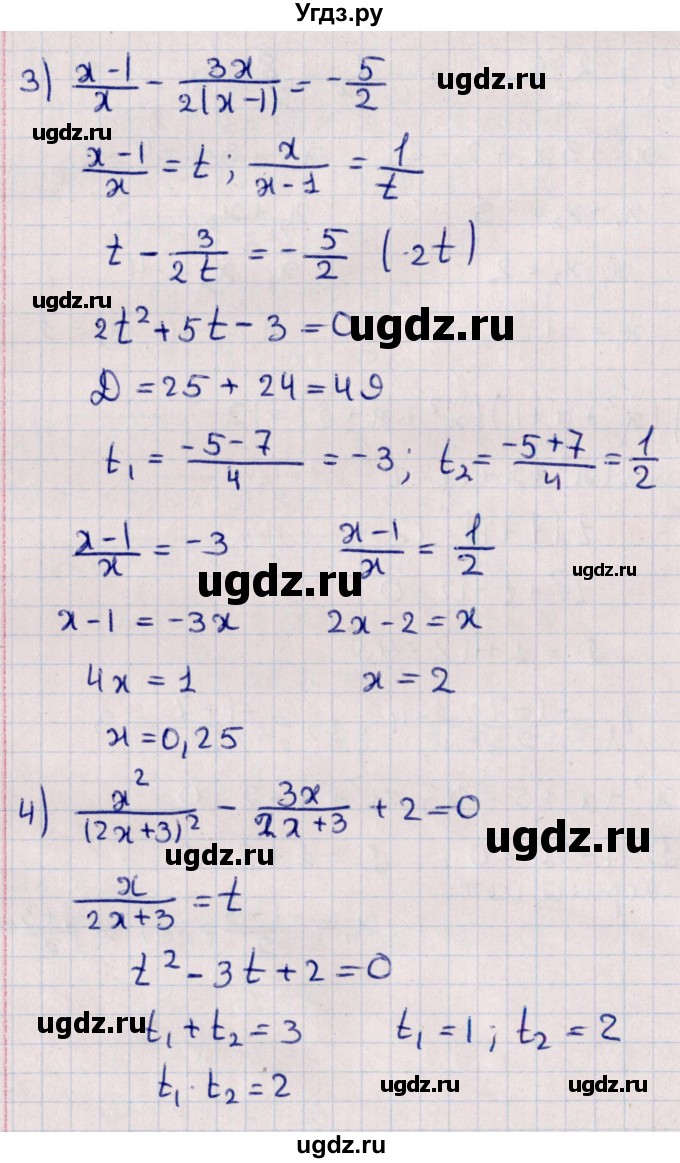 Угдз.ру
3) (x-1)/x - 3x/(2(x-1)) = -5/2 ugdz.ru
ugdz.ru
(x-1)/x = t; x/(x-1) = 1/t
t - 3/(2t) = -5/2 (·2t)
ugdz.ru
2t² + 5t - 3 = 0 ugdz.ru
D = 25 + 24 = 49
t₁ = (-5-7)/4 = -3; t₂ = (-5+7)/4 = 1/2
(x-1)/x = -3 (x-1)/x = 1/2
ugdz.ru ugdz.ru
x-1 = -3x 2x-2 = x
4x = 1 x = 2
x = 0,25
4) x²/(2x+3)² - 3x/(2x+3) + 2 = 0
ugdz.ru ugdz.ru
x/(2x+3) = t
t² - 3t + 2 = 0
ugdz.ru t₁ + t₂ = 3 t₁ = 1; t₂ = 2
t₁ · t₂ = 2 ugdz.ru ugdz.ru
ugdz.ru